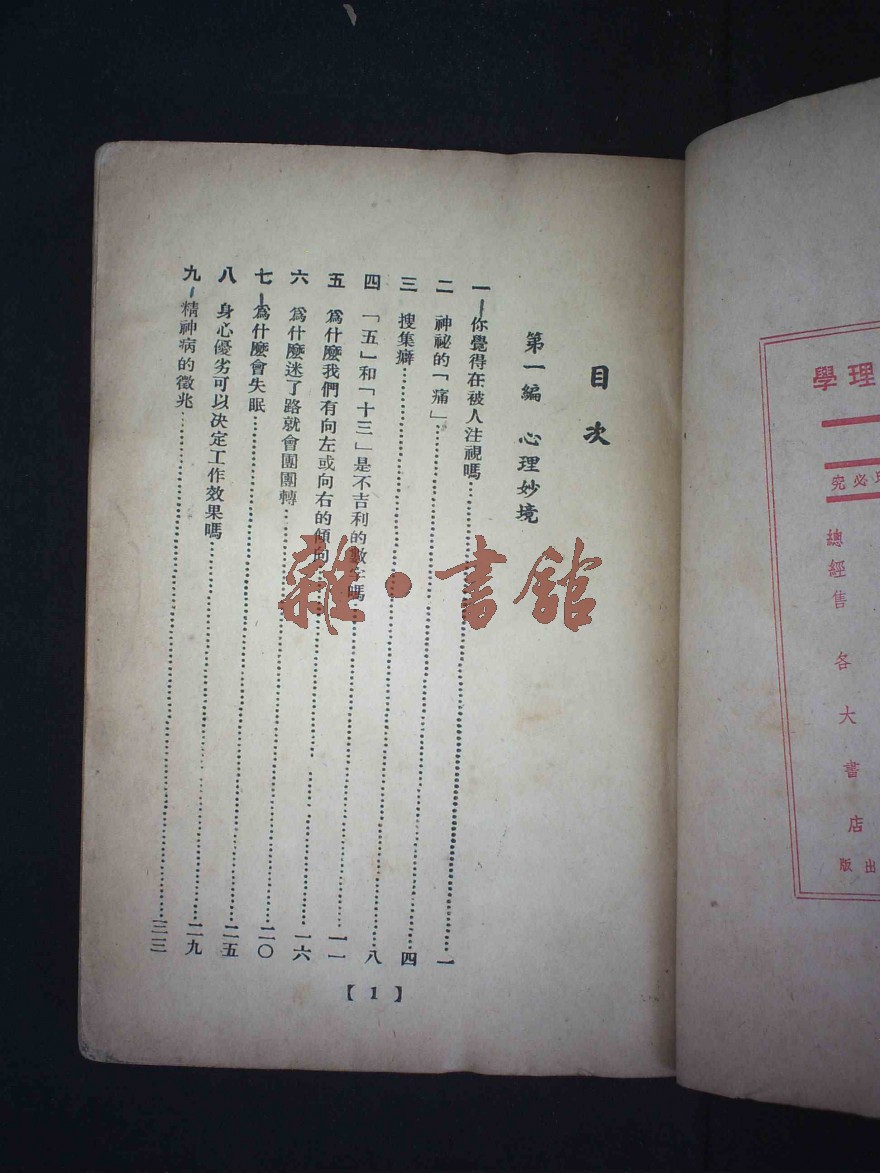 理學
必究
總經售 各大書店
出版
目次
第一編 心理妙境
一 你覺得在被人注視嗎……一
二 神祕的「痛」……四
三 搜集癖……八
四 「五」和「十三」是不吉利的數字嗎……一一
五 爲什麼我們有向左或向右的傾向……一六
六 爲什麼迷了路就會團團轉……二〇
七 爲什麼會失眠……二五
八 身心優劣可以決定工作效果嗎……二九
九 精神病的徵兆……三三
【1】
雜·書館